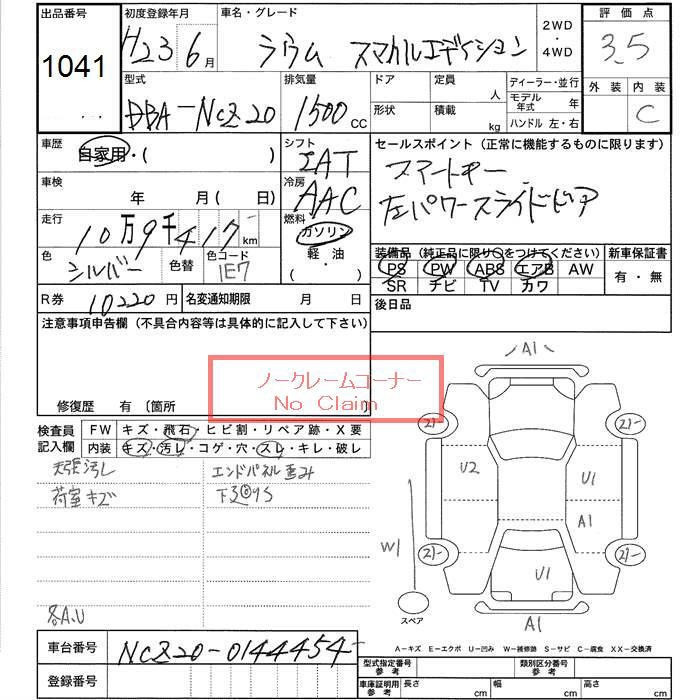 出品番号 初度登録年月 車名・グレード 2WD・4WD 評価点
1041 H23 6月 ラウム スマイルエディション 3.5
型式 排気量 ドア 定員 人 ディーラー・並行 外装 内装
DBA-NCZ20 1500CC 形状 積載 kg モデル年式 年 C
ハンドル 左・右
車歴 自家用・( ) シフト IAT セールスポイント (正常に機能するものに限ります)
車検 年 月(日) 冷房 AAC スマートキー
走行 10万9千417km 燃料 ガソリン・軽油・( ) 左パワースライドドア
色 シルバー 色替 色コード 1E7
装備品 (純正品に限り○をつけてください) 新車保証書
PS PW ABS エアB AW 有・無
SR ナビ TV カワ
R券 10220円 名変通知期限 月 日 後日品
注意事項申告欄 (不具合内容等は具体的に記入して下さい)
ノークレームコーナー
No Claim
修復歴 有 〔箇所 〕
検査員記入欄 FW キズ・飛石・ヒビ割・リペア跡・X要
内装 キズ・汚レ・コゲ・穴・スレ・キレ・破レ
天張汚し エンドパネル歪み
荷室キズ
各A.U
A1
21- 21-
U2 U1
A1
21- 21-
W1
U1
スペア
A1
A-キズ E-エクボ U-凹み W-補修跡 S-サビ C-腐食 XX-交換済
車台番号 NCZ20-0144454
登録番号
型式指定番号 参考 類別区分番号 参考
車庫証明用 参考 長さ cm 幅 cm 高さ cm